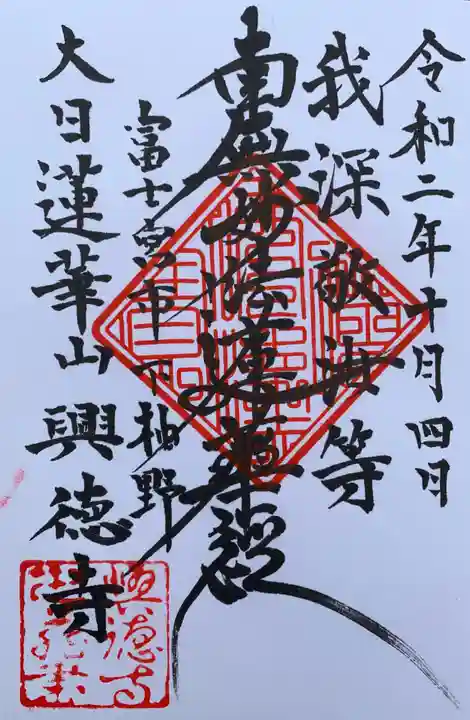 令和二年十月四日
我深敬汝等
南無妙法蓮華経
富士宮市下柚野
大日蓮華山興徳寺
興徳寺